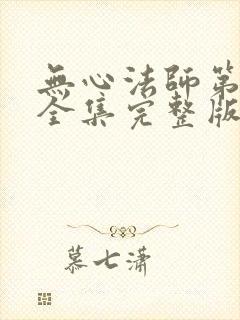 無心法師第
全集完整版
慕七瀟